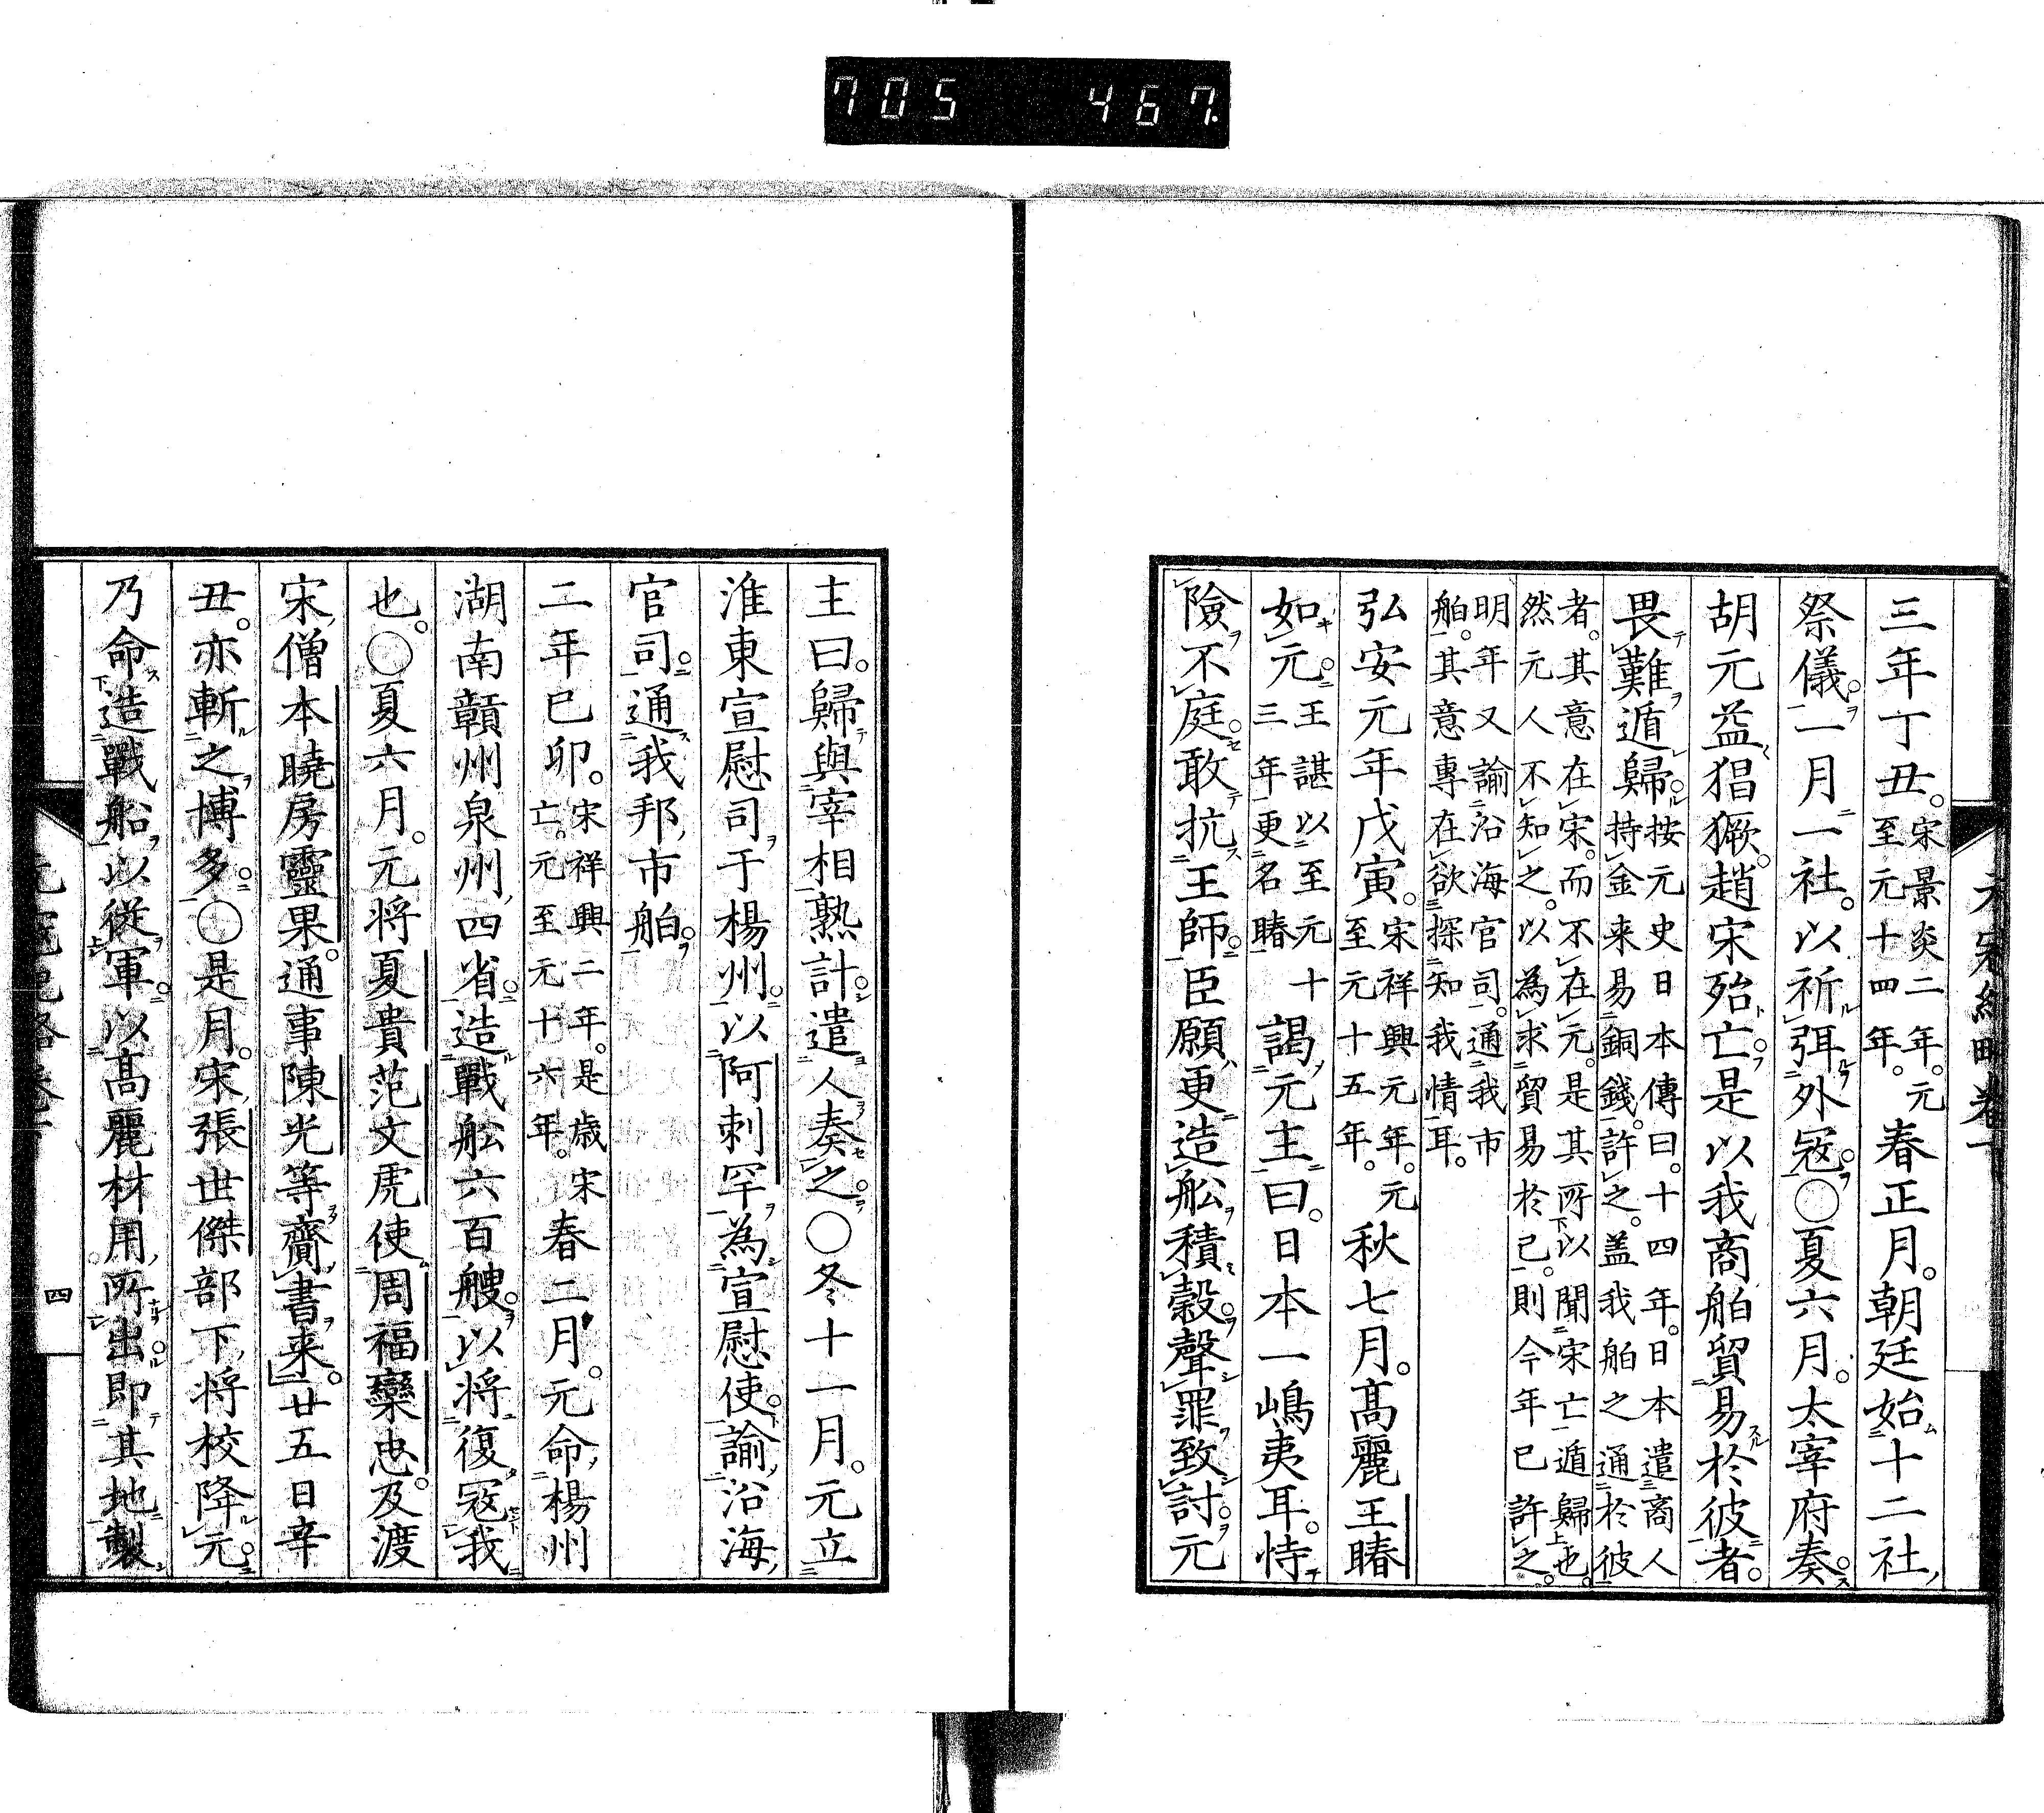 705 467.
三年丁丑。宋景炎二年。元至元十四年。春正月。朝廷始十二社
祭儀。一月一社。以祈弭外寇。○夏六月。太宰府奏
胡元益猖獗。趙宋殆亡。是以我商舶貿易於彼者。
畏難遁歸。按元史日本傳曰。十四年。日本遣商人持金来易銅錢。許之。盖我舶之通於彼
者。其意在宋。而不在元。是其所以聞宋亡遁歸也。然元人不知之。以為求貿易於己。則今年已許之。
明年又諭沿海官司。通我市舶。其意專在欲探知我情耳。
弘安元年戊寅。宋祥興元年。元至元十五年。秋七月。高麗王賰
如元。王諶以至元十三年更名賰謁元主曰。日本一嶋夷耳。恃
險不庭。敢抗王師。臣願更造舩積穀。聲罪致討。元
主曰。歸與宰相熟計。遣人奏之。○冬十一月。元立
淮東宣慰司于楊州。以阿刺罕為宣慰使。諭沿海
官司。通我邦市舶。
二年己卯。宋祥興二年。是歳宋亡。元至元十六年。春二月。元命楊州
湖南贛州泉州四省。造戰舩六百艘。以将復寇我
也。○夏六月。元将夏貴范文虎使周福欒忠。及渡
宋僧本曉房靈果。通事陳光等齎書来。廿五日辛
丑。亦斬之博多。○是月。宋張世傑部下将校降元。
乃命造戰船。以従軍。以高麗材用所出。即其地製
四